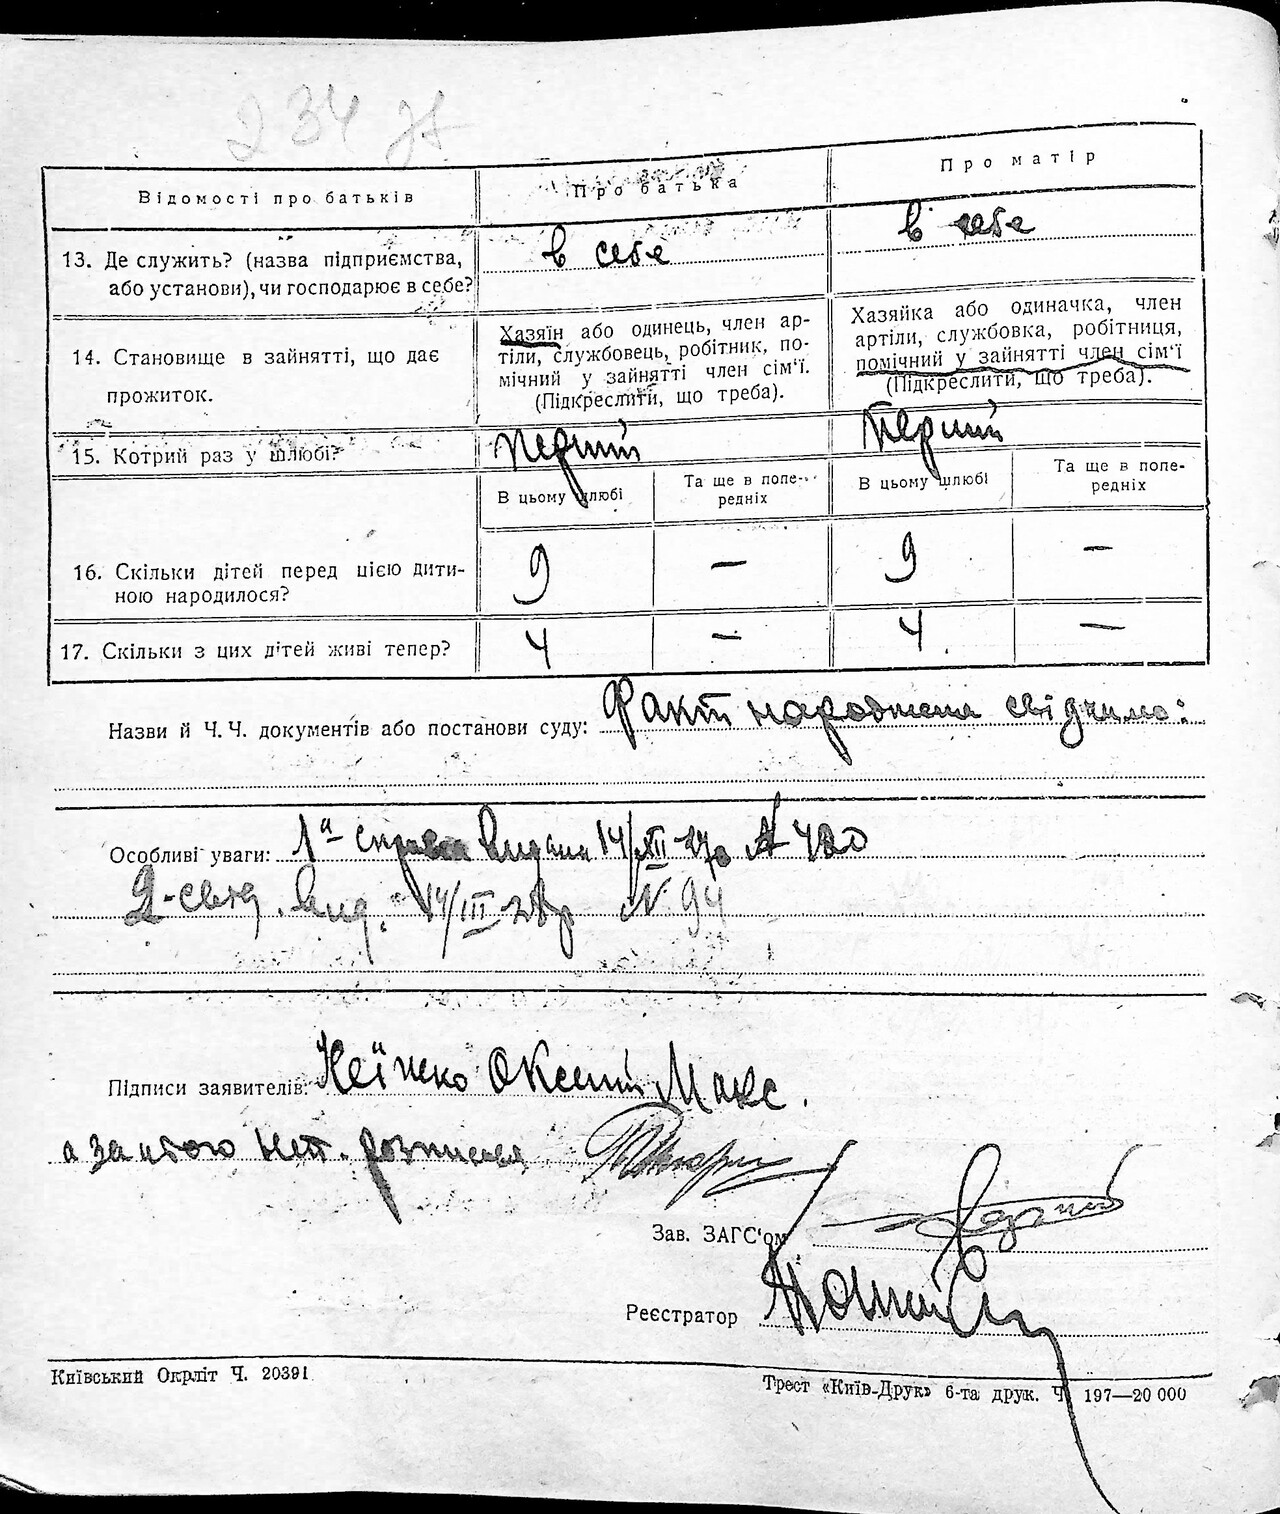 234
Відомості про батьків
Про батька
Про матір
13. Де служить? (назва підприємства,
або установи), чи господарює в себе?
в себе
в себе
14. Становище в зайнятті, що дає
прожиток.
Хазяїн або одинець, член ар-
тіли, службовець, робітник, по-
мічний у зайнятті член сім'ї.
(Підкреслити, що треба).
Хазяйка або одиначка, член
артіли, службовка, робітниця,
помічний у зайнятті член сім'ї
(Підкреслити, що треба).
15. Котрий раз у шлюбі?
перший
перший
В цьому шлюбі
Та ще в попе-
редніх
В цьому шлюбі
Та ще в попе-
редніх
16. Скільки дітей перед цією дити-
ною народилося?
9
—
9
—
17. Скільки з цих дітей живі тепер?
4
—
4
—
Назви й Ч. Ч. документів або постанови суду: Факт народження свідчимо:
Особливі уваги: 1а 14/XII-27р № 420
2- вид. 14/III-28р N 94
Підписи заявителів: Оксент Макс.
а за
Зав. ЗАГС'ом
Реєстратор
Київський Окрліт Ч. 20391
Трест «Київ-Друк» 6-та друк. Ч. 197—20 000